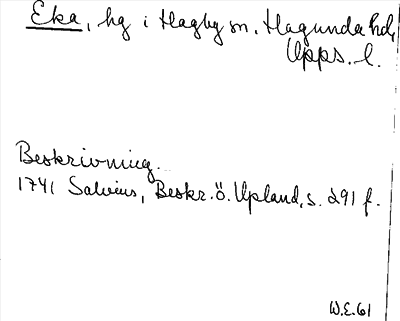 Eka, hg i Hagby sn, Hagunda hd,
Upps. l.
Beskrivning.
1741 Salvius, Beskr. ö. Upland, s. 291 f.
W.E.61